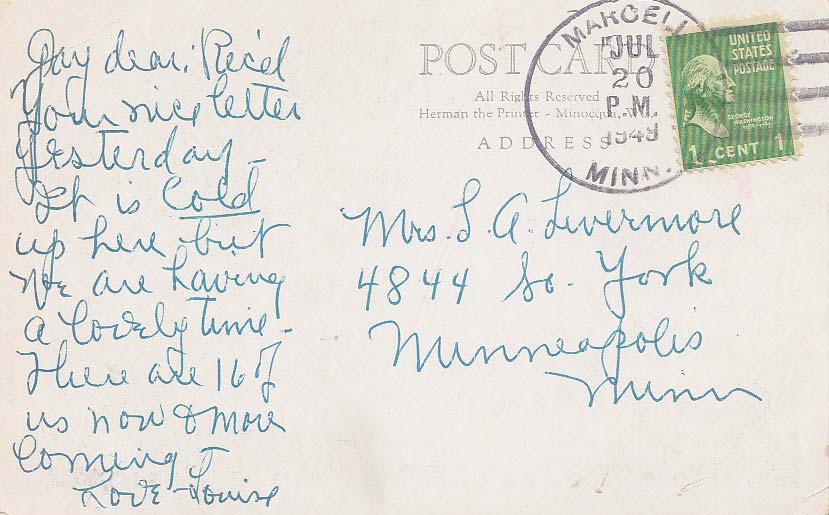 Gay dear: Rec'd
Your nice letter
Yesterday -
It is Cold
up here but
we are having
a lovely time -
There are 16 of
us now & more
Coming -
Love - Louise
POST CARD
All Rights Reserved
Herman the Printer - Minocqua, Wis.
ADDRESS
MARCELL
JUL
20
P.M.
1949
MINN.
UNITED
STATES
POSTAGE
GEORGE
WASHINGTON
1 CENT 1
Mrs. L. A. Livermore
4844 So. York
Minneapolis
Minn